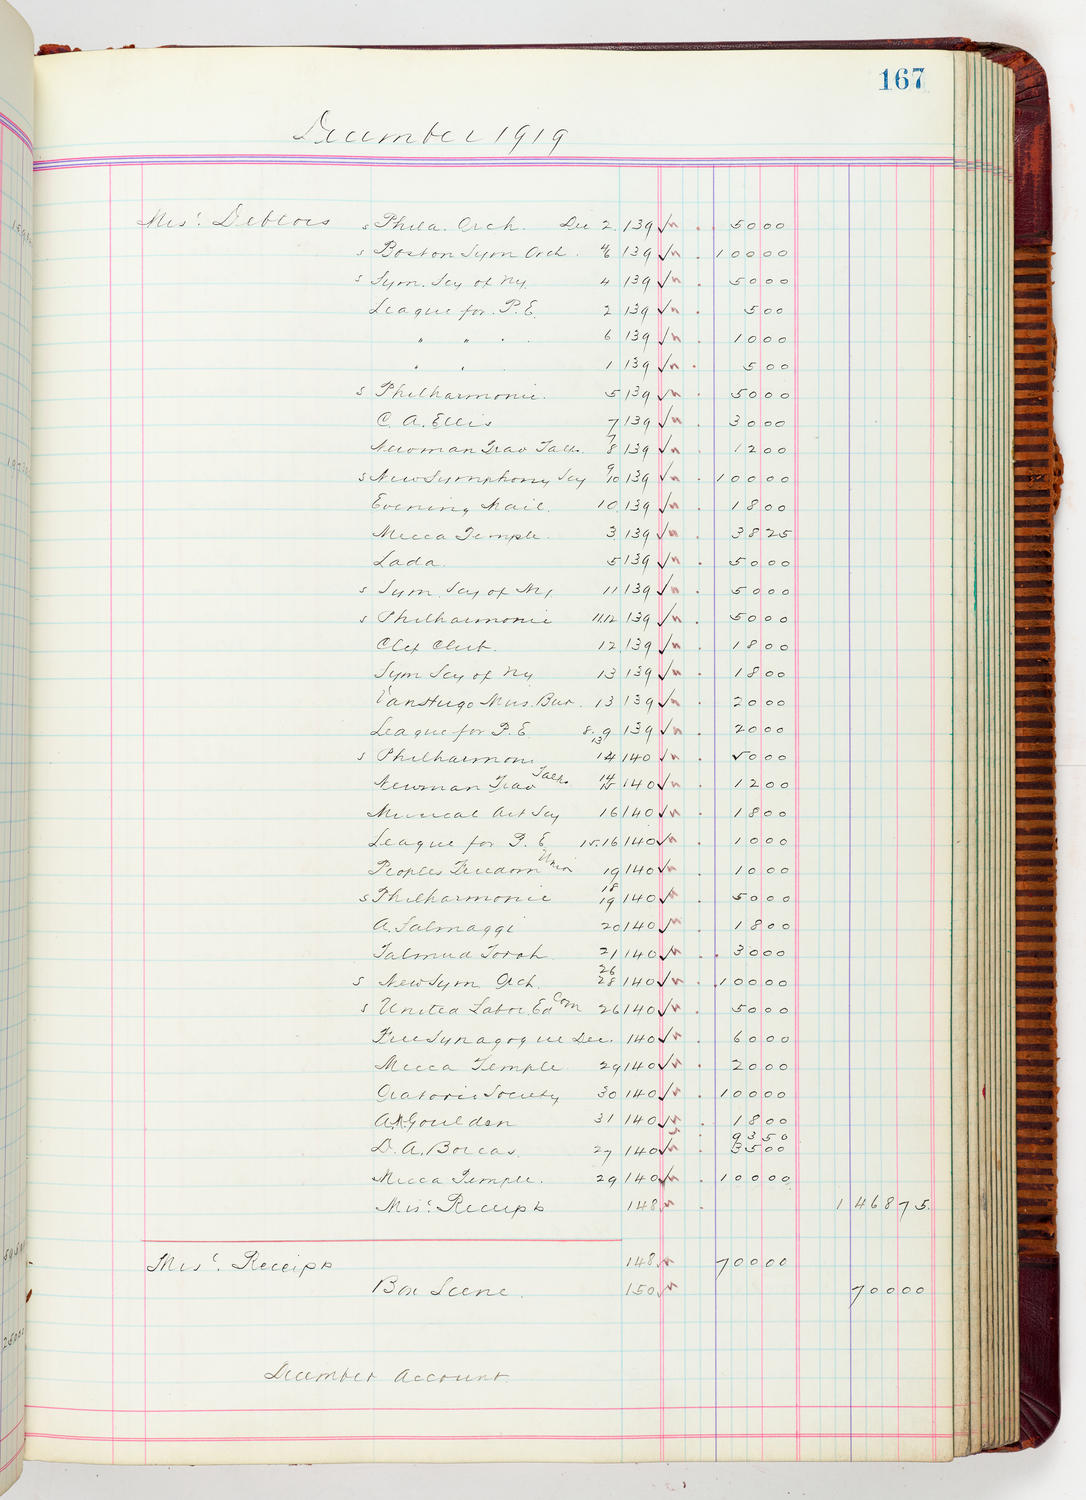 167
December 1919
Misc. Debtors s Phila. Orch. Dec 2 139 50 00
s Boston Sym Orch. 4/6 139 100 00
s Sym. Scy of Ny. 4 139 50 00
League for P.E. 2 139 5 00
" " 6 139 10 00
" " 1 139 5 00
s Philharmonic. 5 139 50 00
C. A. Ellis 7 139 30 00
Newman Trav Talks. 7/8 139 12 00
s New Symphony Scy 9/10 139 100 00
Evening Mail. 10 139 18 00
Mecca Temple. 3 139 38 25
Lada. 5 139 50 00
s Sym. Scy of Ny 11 139 50 00
s Philharmonic 11.12 139 50 00
Clef Club. 12 139 18 00
Sym Scy of Ny 13 139 18 00
Van Hugo Mus. Bur. 13 139 20 00
League for P.E. 8.9 13 139 20 00
s Philharmoni 14 140 50 00
Newman Trav Talks 14/15 140 12 00
Musical Art Scy 16 140 18 00
League for P. E 15.16 140 10 00
Peoples Freedom Union 19 140 10 00
s Philharmonic 18/19 140 50 00
A. Salmaggi 20 140 18 00
Talmud Torah 21 140 30 00
s New Sym Orch. 26/28 140 100 00
s United Labor Ed Com 26 140 50 00
Free Synagogue Dec. 140 60 00
Mecca Temple 29 140 20 00
Oratorio Society 30 140 100 00
A Goulden 31 140 18 00
93 50
D. A. Borcas. 27 140 35 00
Mecca Temple. 29 140 100 00
Misc. Receipts 148 1468 75
Misc. Receipts 148 700 00
Box Scene. 150 700 00
December Account